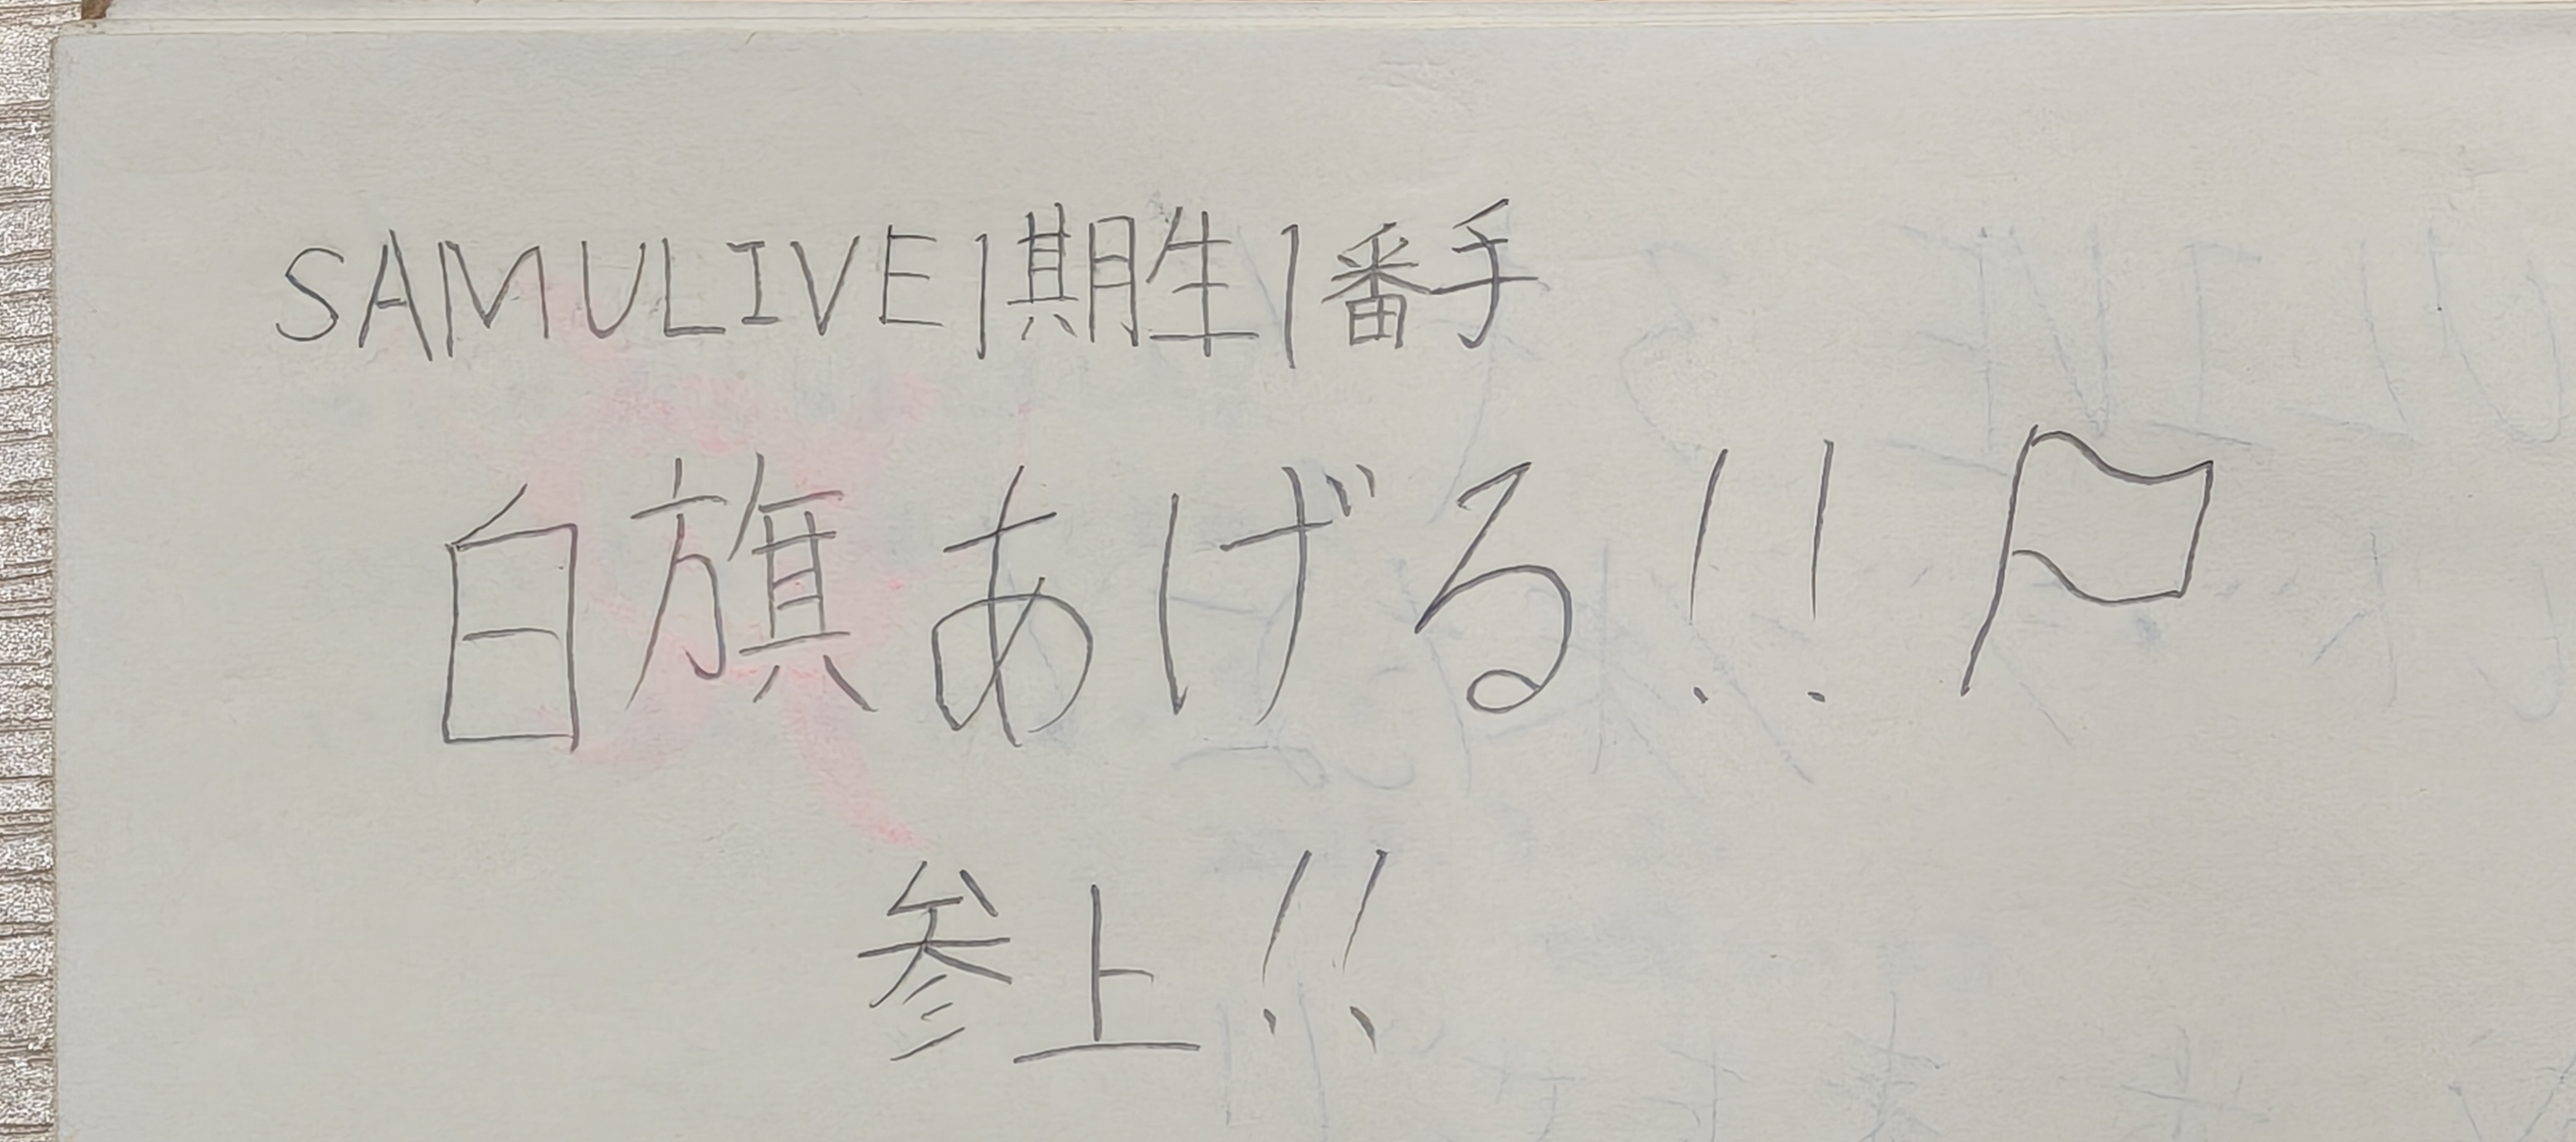 SAMULIVE1期生1番手
白旗あげる!!
参上!!